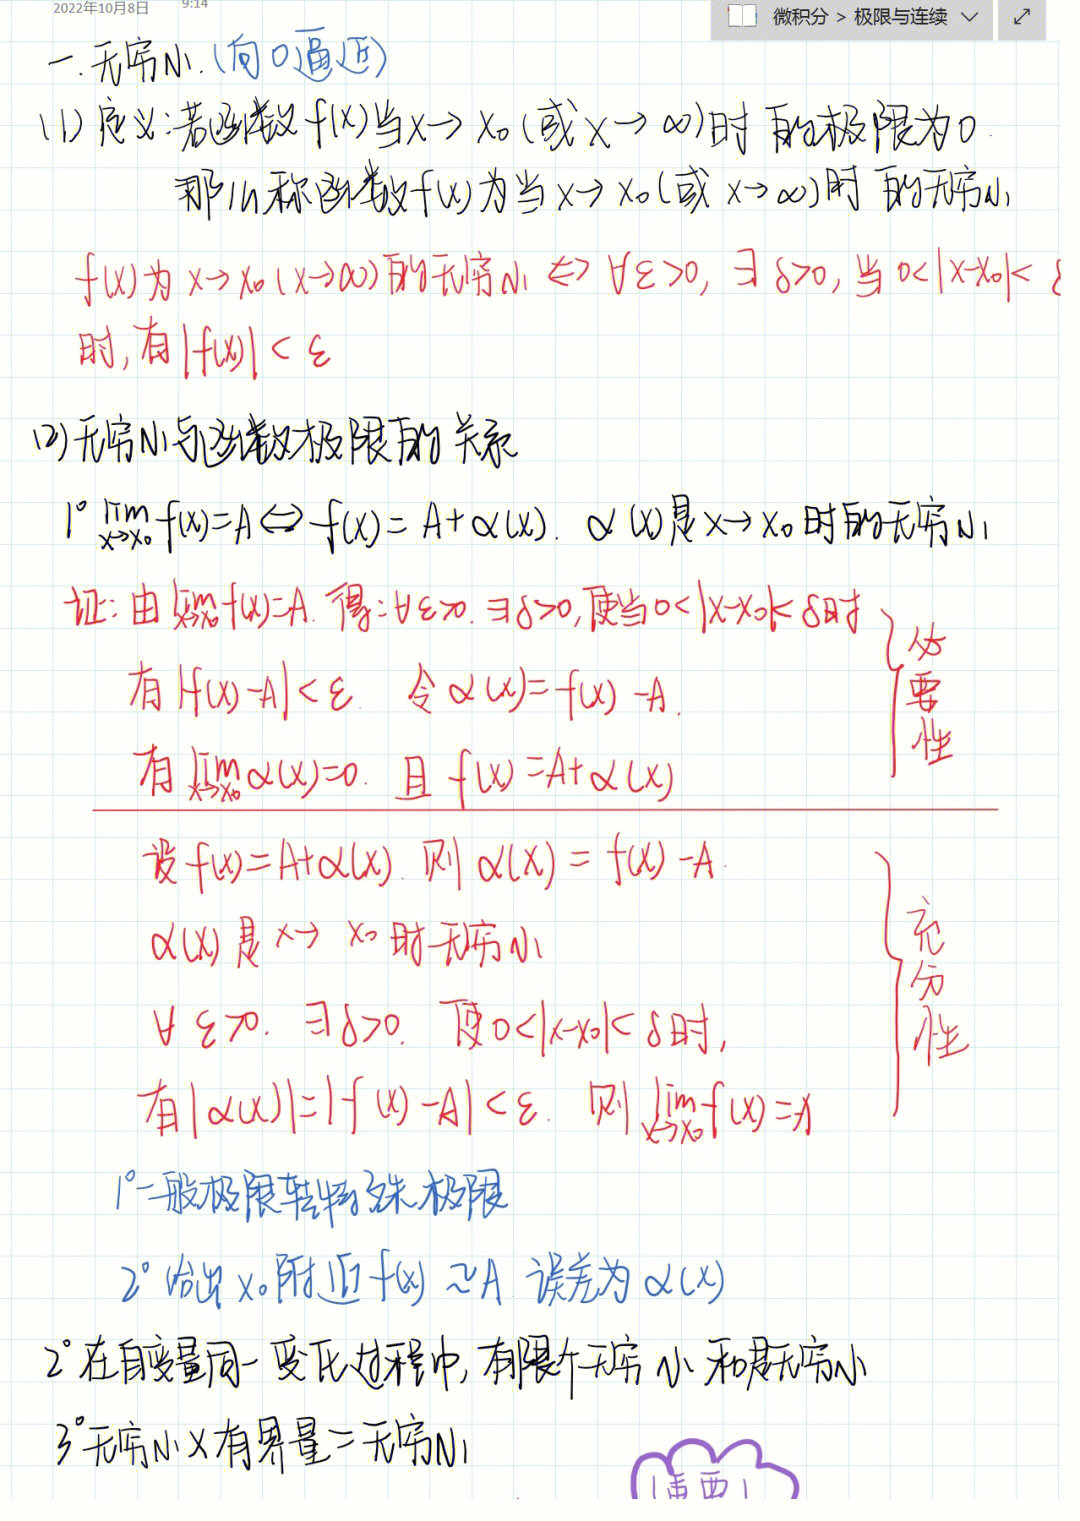 2022年10月8日 9:14
微积分 > 极限与连续
一.无穷小.(向0逼近)
(1) 定义:若函数f(x)当x→x₀(或x→∞)时 的极限为0.
那么称函数f(x)为当x→x₀(或x→∞)时 的无穷小
f(x)为x→x₀(x→∞)的无穷小⇔∀ε>0, ∃δ>0, 当0<|x-x₀|<δ
时,有|f(x)|<ε
(2)无穷小与函数极限的关系
1° lim x→x₀ f(x)=A⇔f(x)=A+α(x). α(x)是x→x₀时的无穷小
证:由lim x→x₀ f(x)=A. 得:∀ε>0. ∃δ>0,使当0<|x-x₀|<δ时
有|f(x)-A|<ε. 令α(x)=f(x)-A.
有lim x→x₀ α(x)=0. 且f(x)=A+α(x)
必要性
设f(x)=A+α(x). 则α(x)=f(x)-A.
α(x)是x→x₀时无穷小
∀ε>0. ∃δ>0. 使0<|x-x₀|<δ时,
有|α(x)|=|f(x)-A|<ε. 则lim x→x₀ f(x)=A
充分性
1°一般极限转特殊极限
2°给出x₀附近f(x)≈A 误差为α(x)
2°在自变量同一变化过程中,有限个无穷小和是无穷小
3°无穷小×有界量=无穷小
重要